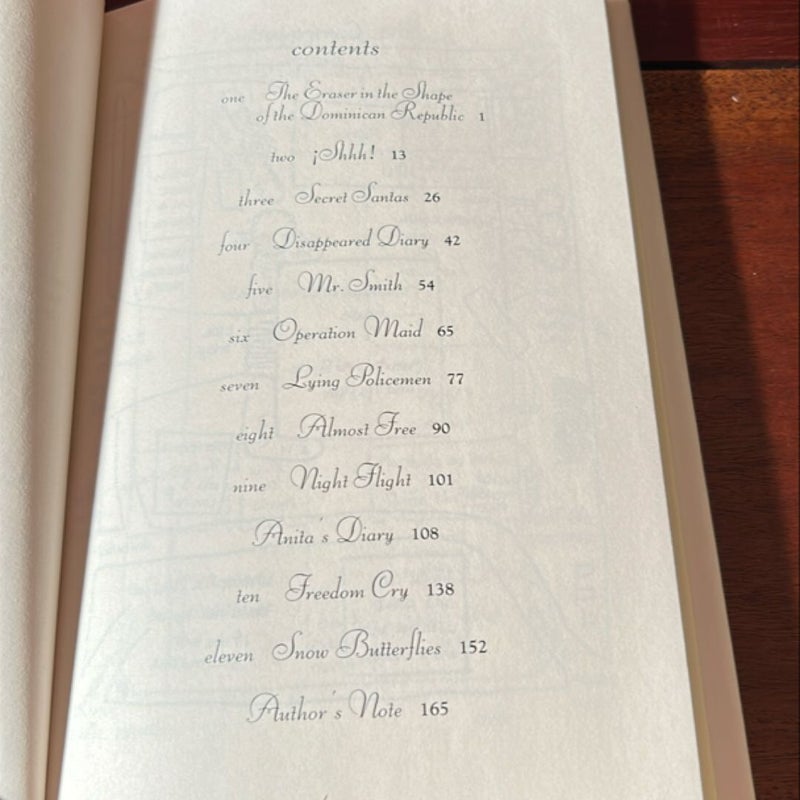 contents
one The Eraser in the Shape
of the Dominican Republic 1
two ¡Shhh! 13
three Secret Santas 26
four Disappeared Diary 42
five Mr. Smith 54
six Operation Maid 65
seven Lying Policemen 77
eight Almost Free 90
nine Night Flight 101
Anita's Diary 108
ten Freedom Cry 138
eleven Snow Butterflies 152
Author's Note 165